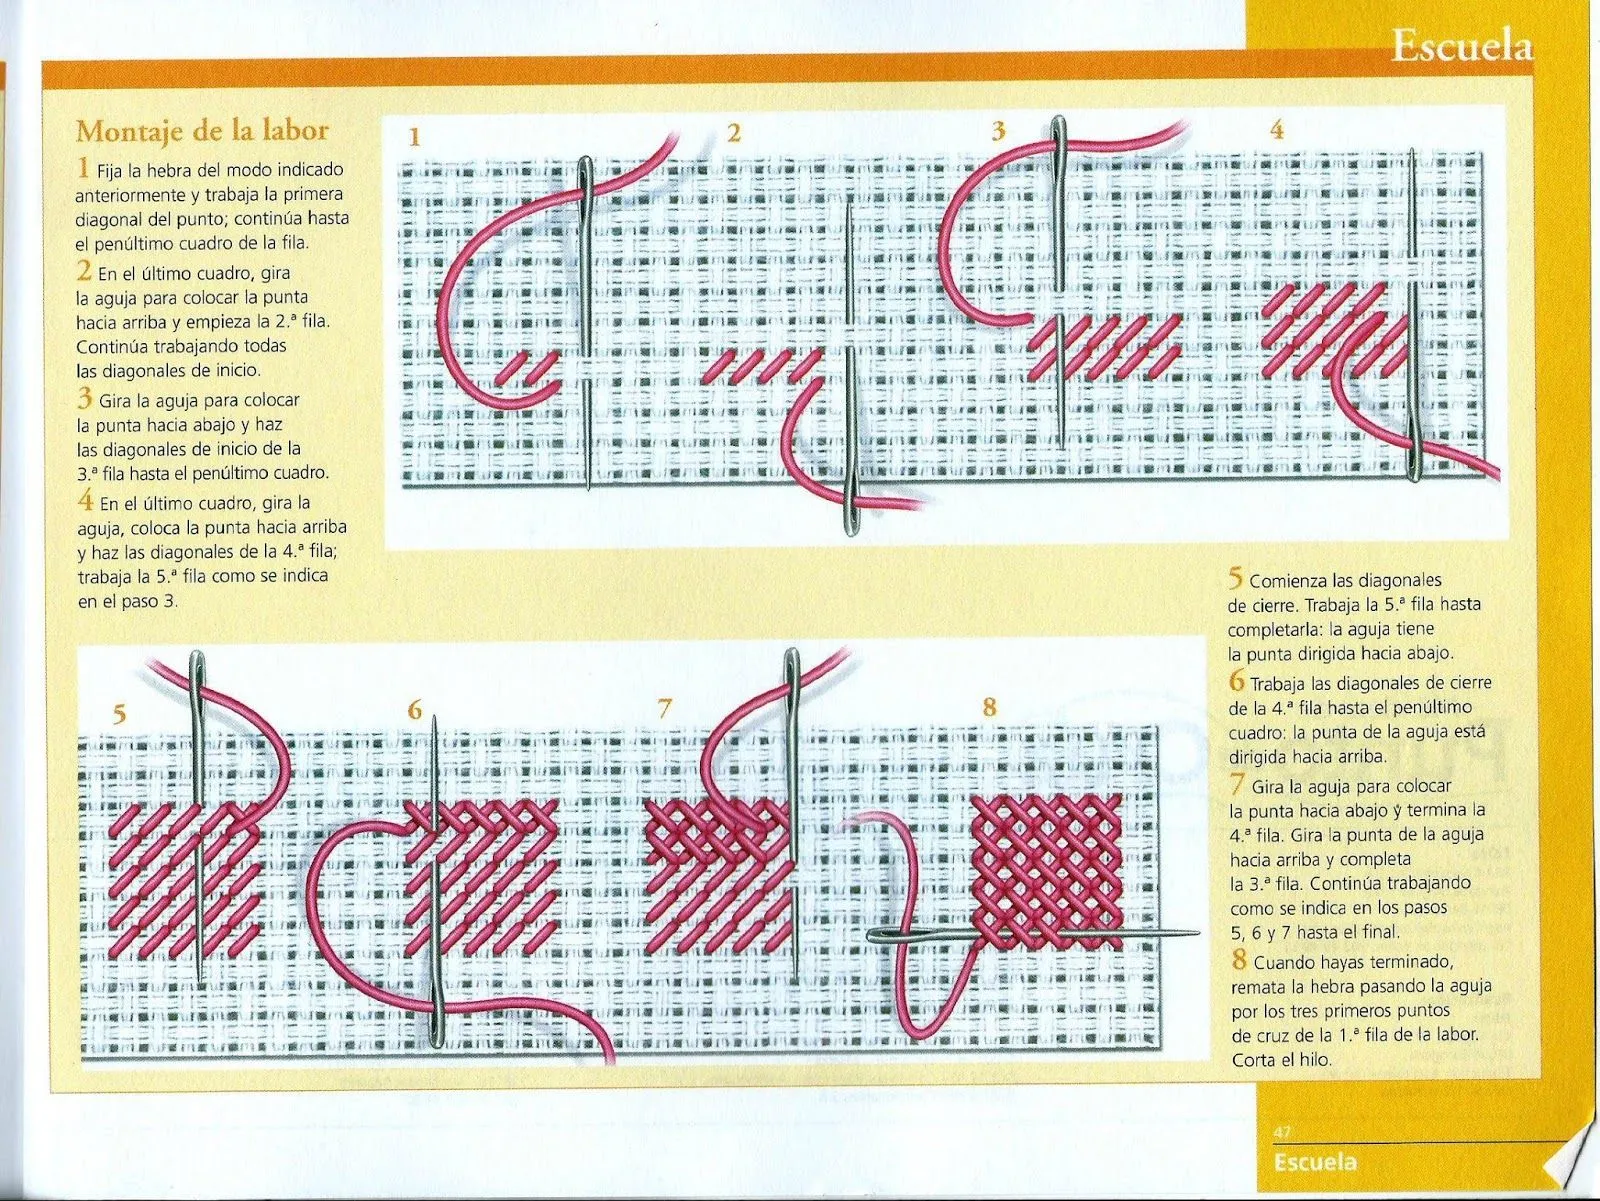 Escuela
Montaje de la labor
1 Fija la hebra del modo indicado
anteriormente y trabaja la primera
diagonal del punto; continúa hasta
el penúltimo cuadro de la fila.
2 En el último cuadro, gira
la aguja para colocar la punta
hacia arriba y empieza la 2.ª fila.
Continúa trabajando todas
las diagonales de inicio.
3 Gira la aguja para colocar
la punta hacia abajo y haz
las diagonales de inicio de la
3.ª fila hasta el penúltimo cuadro.
4 En el último cuadro, gira la
aguja, coloca la punta hacia arriba
y haz las diagonales de la 4.ª fila;
trabaja la 5.ª fila como se indica
en el paso 3.
1 2 3 4
5 6 7 8
5 Comienza las diagonales
de cierre. Trabaja la 5.ª fila hasta
completarla: la aguja tiene
la punta dirigida hacia abajo.
6 Trabaja las diagonales de cierre
de la 4.ª fila hasta el penúltimo
cuadro: la punta de la aguja está
dirigida hacia arriba.
7 Gira la aguja para colocar
la punta hacia abajo y termina la
4.ª fila. Gira la punta de la aguja
hacia arriba y completa
la 3.ª fila. Continúa trabajando
como se indica en los pasos
5, 6 y 7 hasta el final.
8 Cuando hayas terminado,
remata la hebra pasando la aguja
por los tres primeros puntos
de cruz de la 1.ª fila de la labor.
Corta el hilo.
47
Escuela